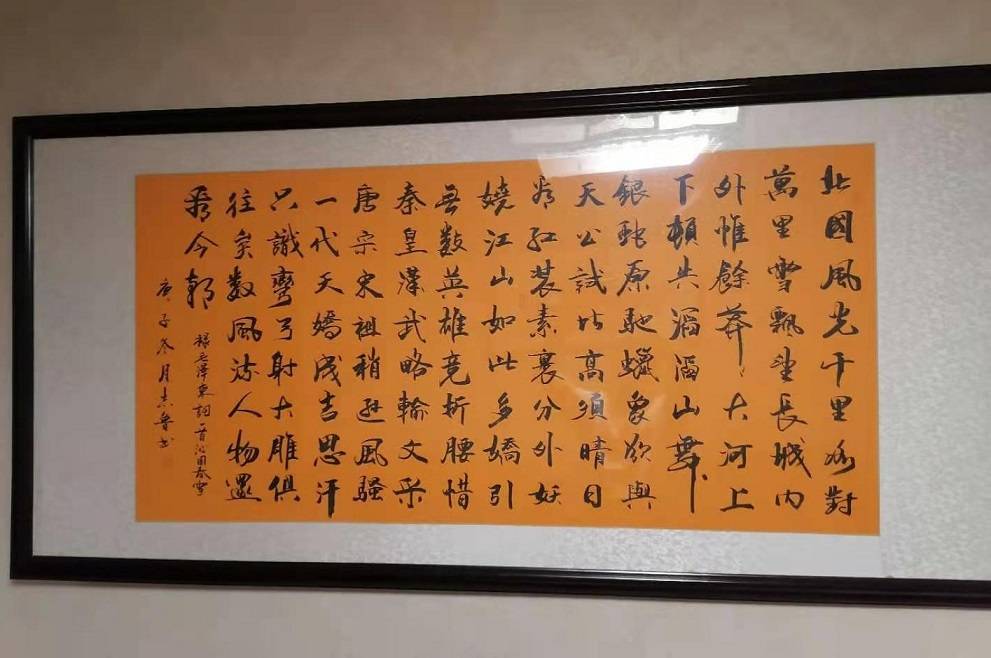 北國風光千里冰封
萬里雪飄望長城內
外惟餘莽〻大河上
下頓失滔滔山舞
銀蛇原馳蠟象欲與
天公試比高須晴日
看紅裝素裹分外妖
嬈江山如此多嬌引
無數英雄競折腰惜
秦皇漢武略輸文采
唐宗宋祖稍遜風騷
一代天嬌成吉思汗
只識彎弓射大雕俱
往矣數風流人物還
看今朝
錄毛澤東詞一首沁園春雪
庚子冬月志魯書